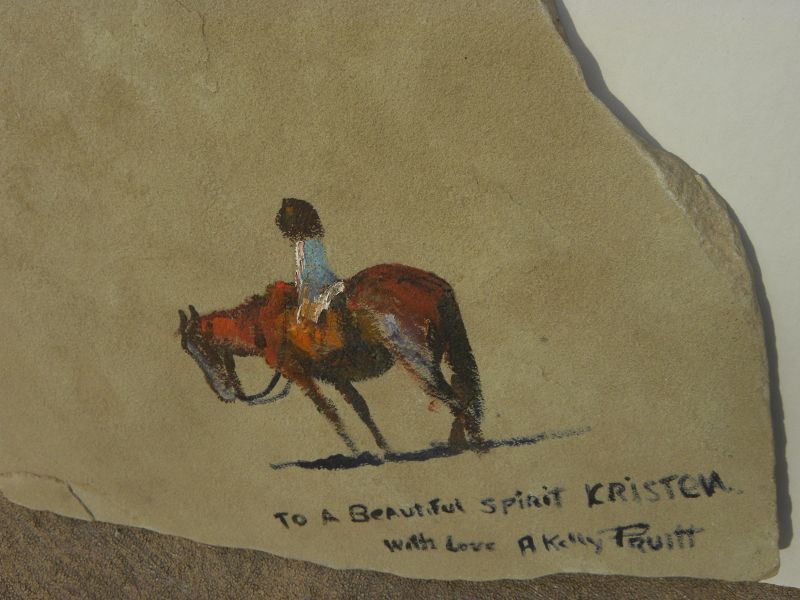 To A Beautiful Spirit KRISTEN.
With Love A Kelly Pruitt